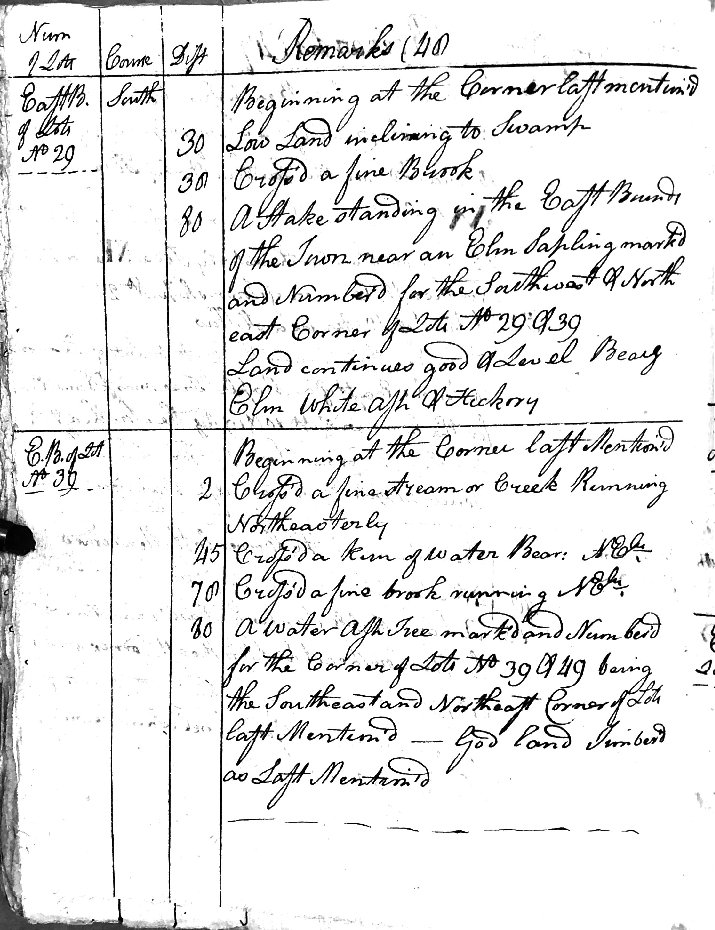 Num Remarks (48
of Lots Course Dist
East B. South Beginning at the Corner last mention'd
of Lots 30 Low Land inclining to Swamp
No 29 38 Cross'd a fine Brook
80 A Stake standing in the East Bounds
of the Town near an Elm Sapling mark'd
and Number'd for the Southwest & North
east Corner of Lots No 29 & 39
Land continues good & Level Bears
Elm White ash & Hickory
E.B. of Lot Beginning at the Corner last Mention'd
No 39 2 Cross'd a fine stream or Creek Running
Northeasterly
45 Cross'd a run of water Bear: NEly.
78 Cross'd a fine brook running NEly.
80 A water Ash Tree mark'd and Numberd
for the Corner of Lots No 39 & 49 being
the Southeast and Northeast Corner of Lots
last Mention'd — God land Timberd
as Last Mention'd